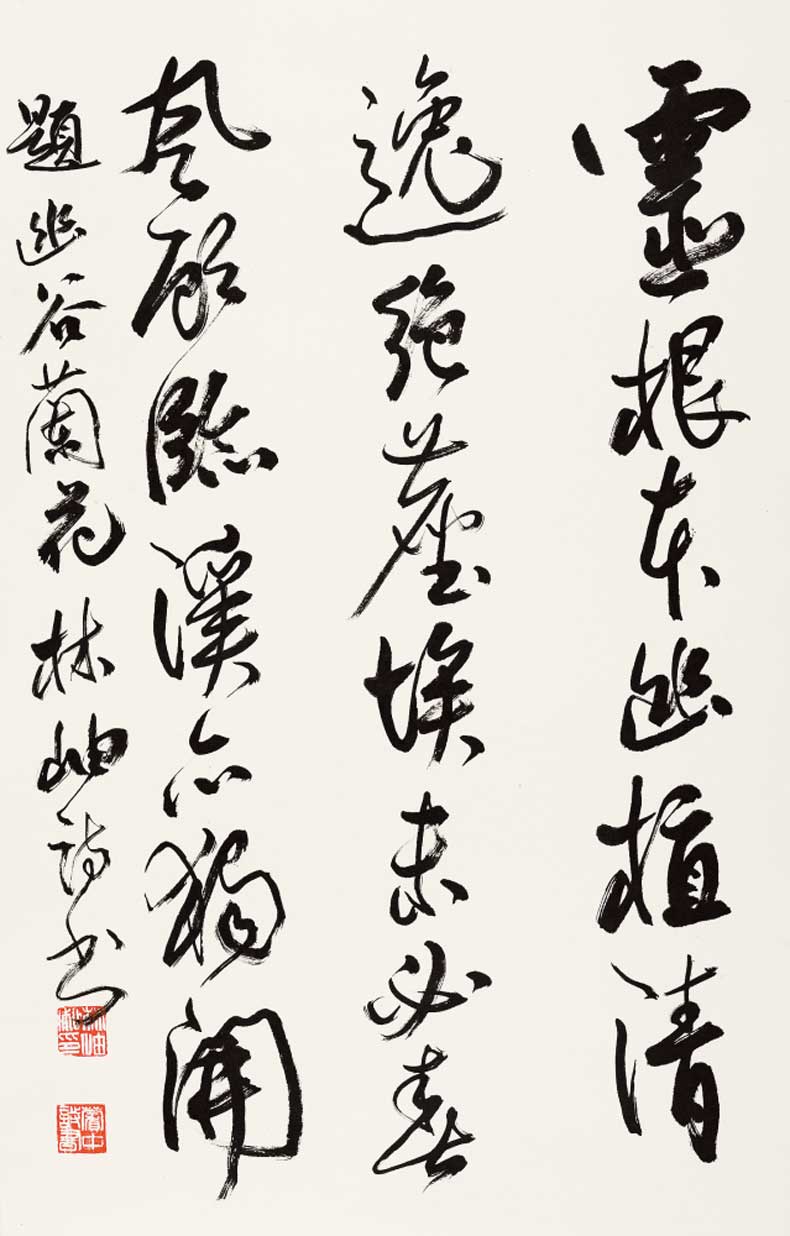 靈根本幽植清
逸絕塵埃未必春
風顧臨溪亦獨開
題幽谷蘭花 林岫詩書
林岫